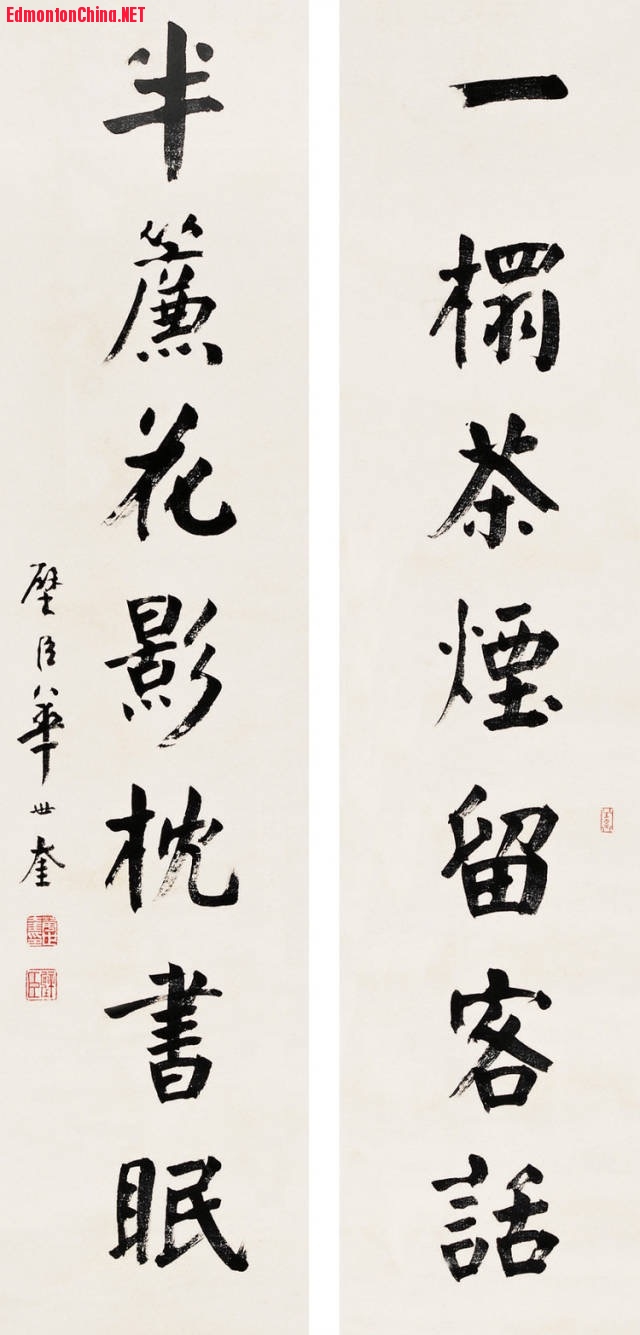 EdmontonChina.NET
一榻茶煙留客話
半簾花影枕書眠
璧臣華世奎